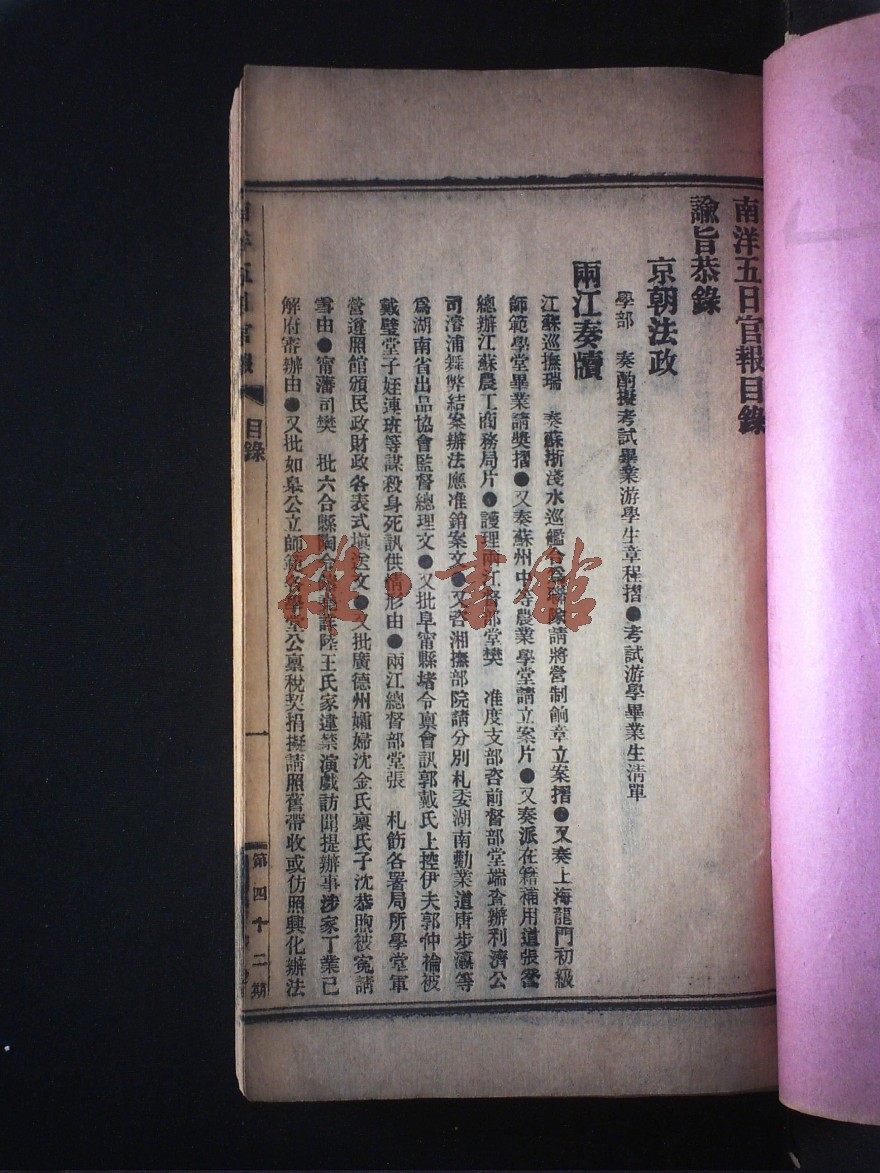 南洋五日官報目錄
諭旨恭錄
京朝法政
學部　奏酌擬考試畢業游學生章程摺●考試游學畢業生清單
兩江奏牘
江蘇巡撫瑞　奏蘇浙淺水巡艦會爲聯隊請將營制餉章立案摺●又奏上海龍門初級
師範學堂畢業請獎摺●又奏蘇州中等農業學堂請立案片●又奏派在籍補用道張
總辦江蘇農工商務局片●護理兩江督部堂樊　准度支部咨前督部堂端查辦利濟公
司濬浦舞弊結案辦法應准銷案文●又咨湘撫部院請分別札委湖南勸業道唐步瀛等
爲湖南省出品協會監督總理文●又批阜甯縣堵令禀會訊郭戴氏上控伊夫郭仲禴被
戴璧堂子姪連班等謀殺身死訊供情形由●兩江總督部堂張　札飭各署局所學堂軍
營遵照館頒民政財政各表式塡送文●又批廣德州孀婦沈金氏禀氏子沈恭煦被寃請
雪由●甯藩司樊　批六合縣陶令陸王氏家違禁演戲訪聞提辦事涉家丁業已
解府審辦由●又批如皋公立師範各學堂公禀稅契捐擬請照舊帶收或仿照興化辦法
南洋五日官報
目錄
一
第四十二期
雅・書館